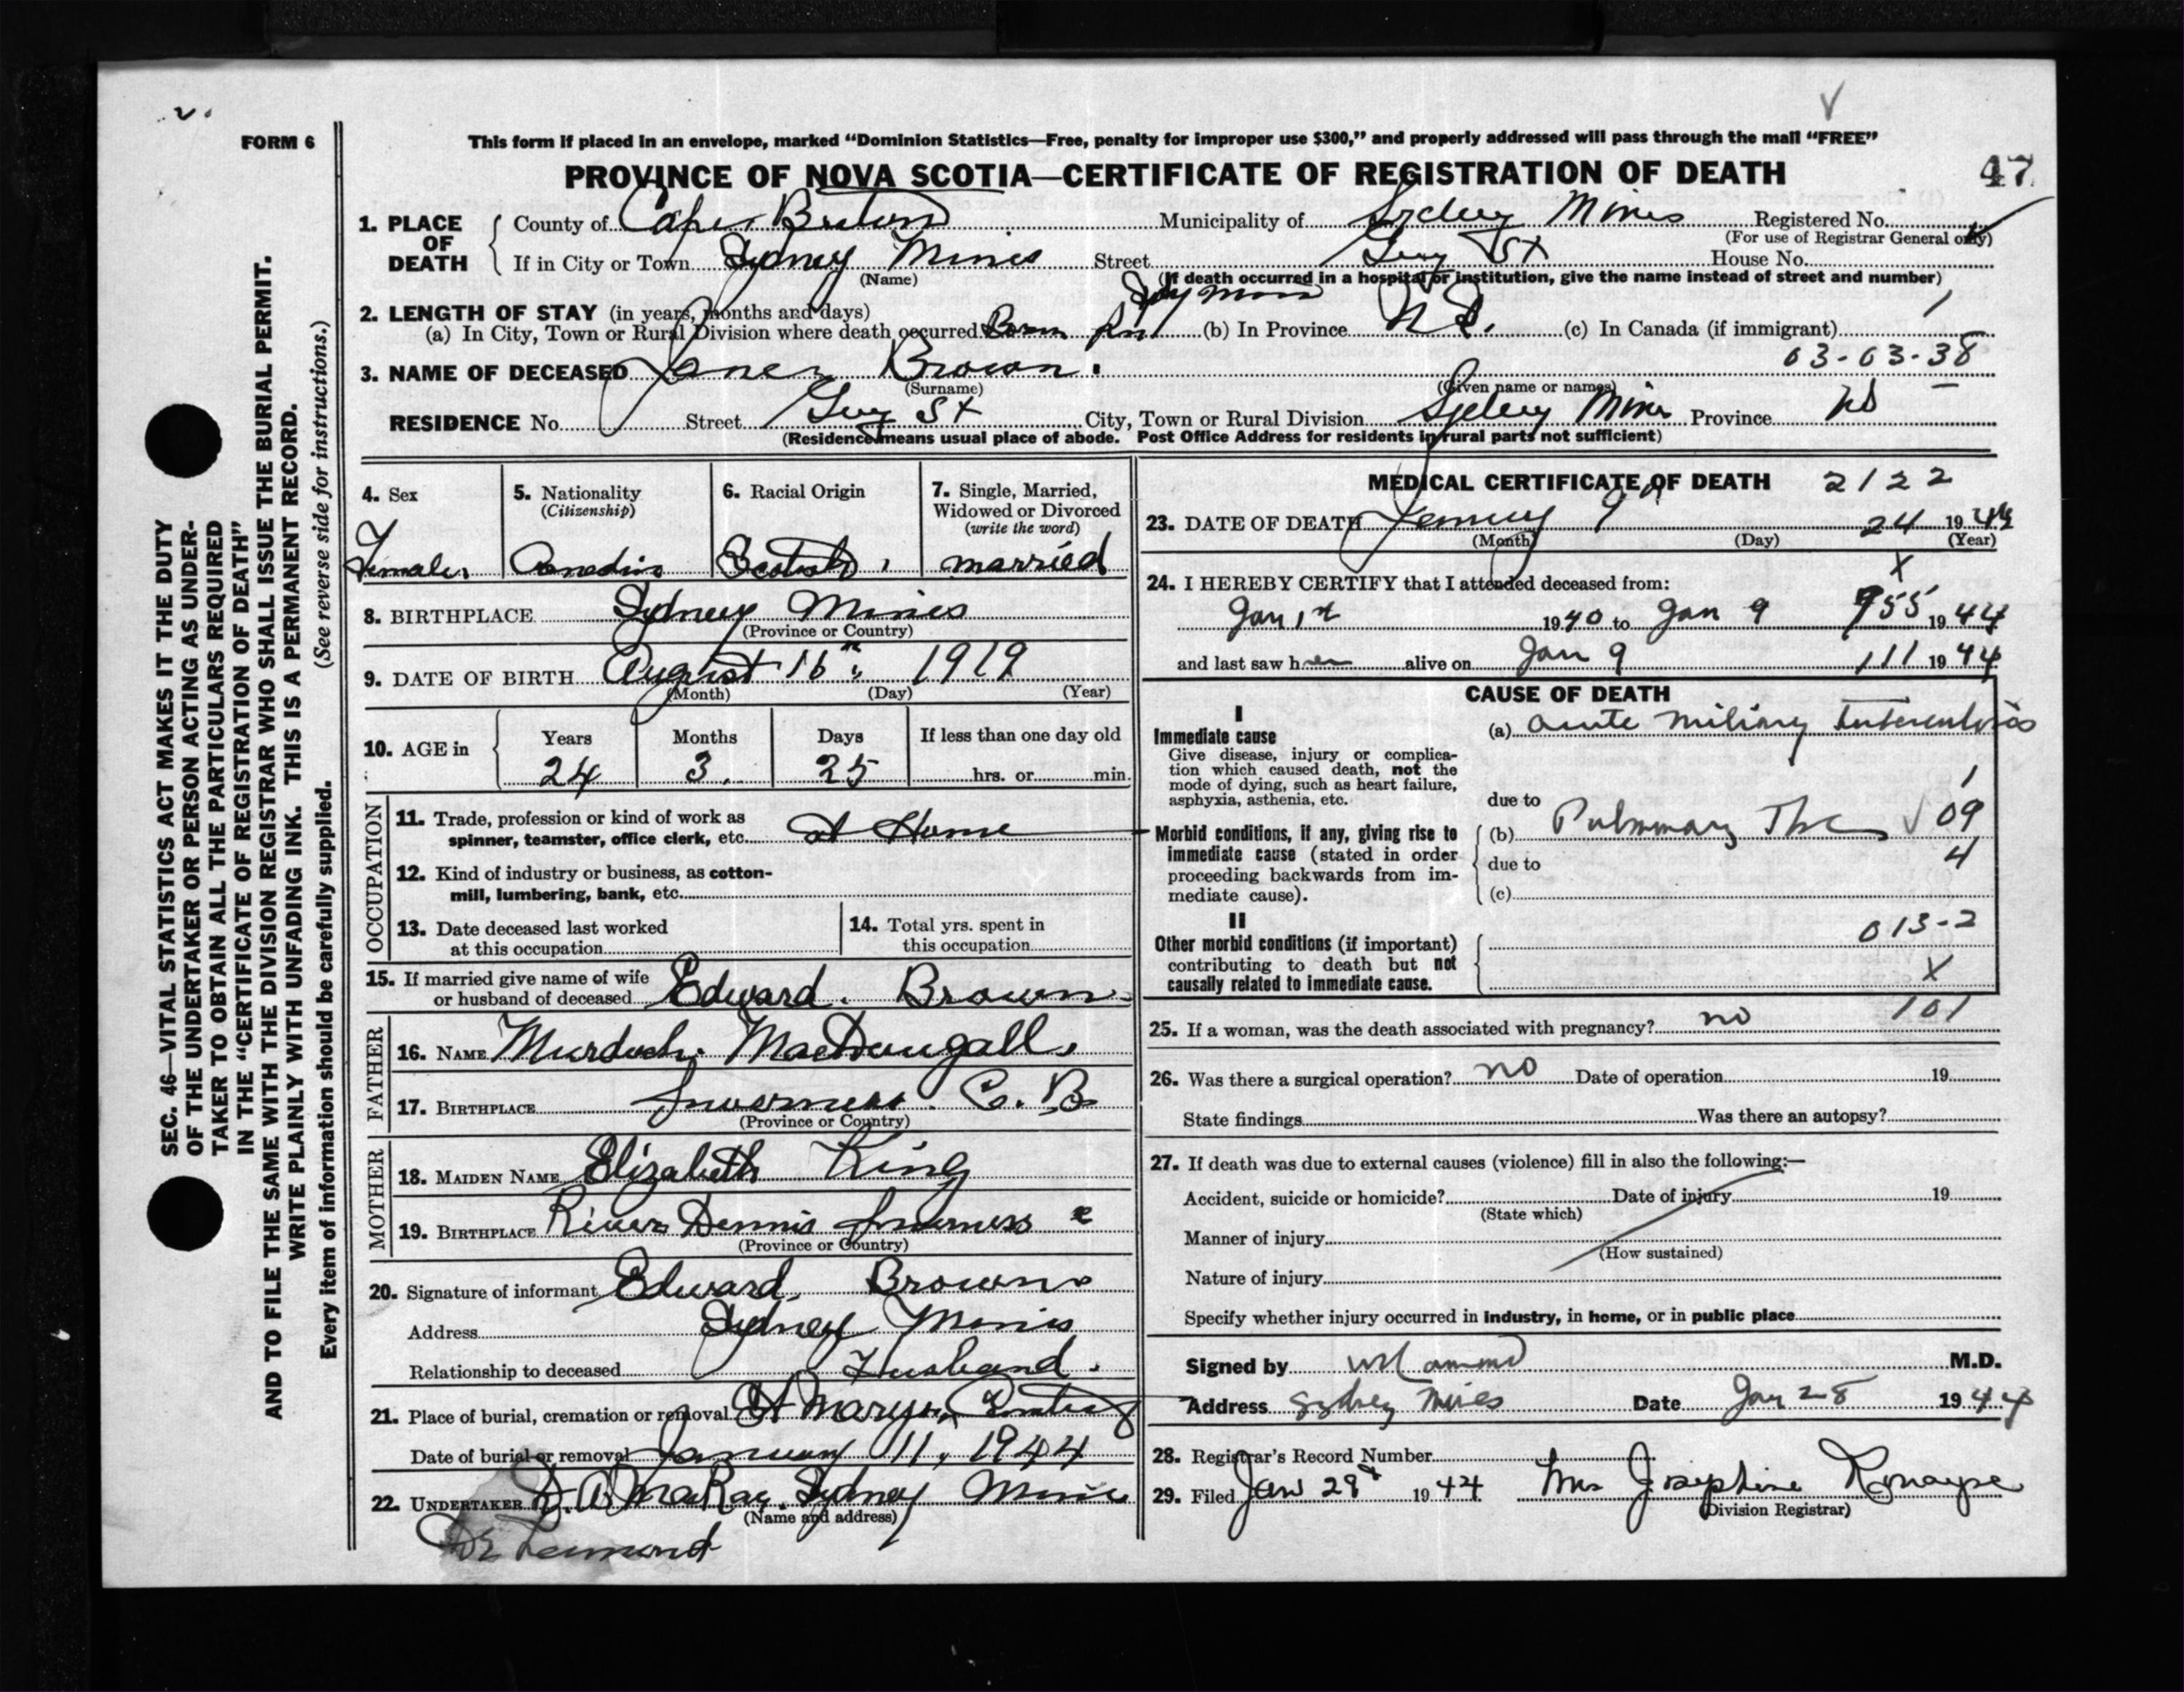 FORM 6
This form if placed in an envelope, marked “Dominion Statistics—Free, penalty for improper use $300,” and properly addressed will pass through the mail “FREE”
PROVINCE OF NOVA SCOTIA—CERTIFICATE OF REGISTRATION OF DEATH
47
1. PLACE OF DEATH
County of Cape Breton Municipality of Sydney Mines Registered No.
(For use of Registrar General only)
If in City or Town Sydney Mines Street St House No.
(Name)
(If death occurred in a hospital or institution, give the name instead of street and number)
2. LENGTH OF STAY (in years, months and days)
(a) In City, Town or Rural Division where death occurred Born (b) In Province N S. (c) In Canada (if immigrant)
03-03-38
3. NAME OF DECEASED Brown.
(Surname) (Given name or names)
RESIDENCE No. Street St City, Town or Rural Division Sydney Mines Province NS
(Residence means usual place of abode. Post Office Address for residents in rural parts not sufficient)
SEC. 46—VITAL STATISTICS ACT MAKES IT THE DUTY
OF THE UNDERTAKER OR PERSON ACTING AS UNDER-
TAKER TO OBTAIN ALL THE PARTICULARS REQUIRED
IN THE “CERTIFICATE OF REGISTRATION OF DEATH”
AND TO FILE THE SAME WITH THE DIVISION REGISTRAR WHO SHALL ISSUE THE BURIAL PERMIT.
WRITE PLAINLY WITH UNFADING INK. THIS IS A PERMANENT RECORD.
Every item of information should be carefully supplied. (See reverse side for instructions.)
4. Sex
Female
5. Nationality
(Citizenship)
Canadian
6. Racial Origin
Scotish
7. Single, Married,
Widowed or Divorced
(write the word)
married
8. BIRTHPLACE Sydney Mines
(Province or Country)
9. DATE OF BIRTH August 16th 1919
(Month) (Day) (Year)
10. AGE in
Years Months Days If less than one day old
24 3. 25 hrs. or min.
OCCUPATION
11. Trade, profession or kind of work as
spinner, teamster, office clerk, etc. at Home
12. Kind of industry or business, as cotton-
mill, lumbering, bank, etc.
13. Date deceased last worked
at this occupation
14. Total yrs. spent in
this occupation
15. If married give name of wife
or husband of deceased Edward. Brown
FATHER
16. NAME Murdoch. MacDougall.
17. BIRTHPLACE Inverness. C. B
(Province or Country)
MOTHER
18. MAIDEN NAME Elizabeth King
19. BIRTHPLACE River Dennis Inverness
(Province or Country)
20. Signature of informant Edward. Brown
Address Sydney Mines
Relationship to deceased Husband.
21. Place of burial, cremation or removal St Marys
Date of burial or removal January 11, 1944
22. UNDERTAKER D. A. MacRae. Sydney Mines
(Name and address)
MEDICAL CERTIFICATE OF DEATH 2122
23. DATE OF DEATH 9th 24 1944
(Month) (Day) (Year)
24. I HEREBY CERTIFY that I attended deceased from:
X
Jan 1st 1940 to Jan 9 955 1944
and last saw her alive on Jan 9 111 1944
CAUSE OF DEATH
I
Immediate cause
Give disease, injury or complica-
tion which caused death, not the
mode of dying, such as heart failure,
asphyxia, asthenia, etc.
(a) acute miliary tuberculosis
due to
Morbid conditions, if any, giving rise to
immediate cause (stated in order
proceeding backwards from im-
mediate cause).
(b) Pulmonary Tbc 09
due to 4
(c)
II
Other morbid conditions (if important)
contributing to death but not
causally related to immediate cause.
013-2
X
101
25. If a woman, was the death associated with pregnancy? no
26. Was there a surgical operation? no Date of operation 19
State findings Was there an autopsy?
27. If death was due to external causes (violence) fill in also the following:—
Accident, suicide or homicide? Date of injury 19
(State which)
Manner of injury
(How sustained)
Nature of injury
Specify whether injury occurred in industry, in home, or in public place
Signed by M.D.
Address Sydney Mines Date Jan 28 1944
28. Registrar's Record Number
29. Filed Jan 29 1944 Mrs Josephine
(Division Registrar)